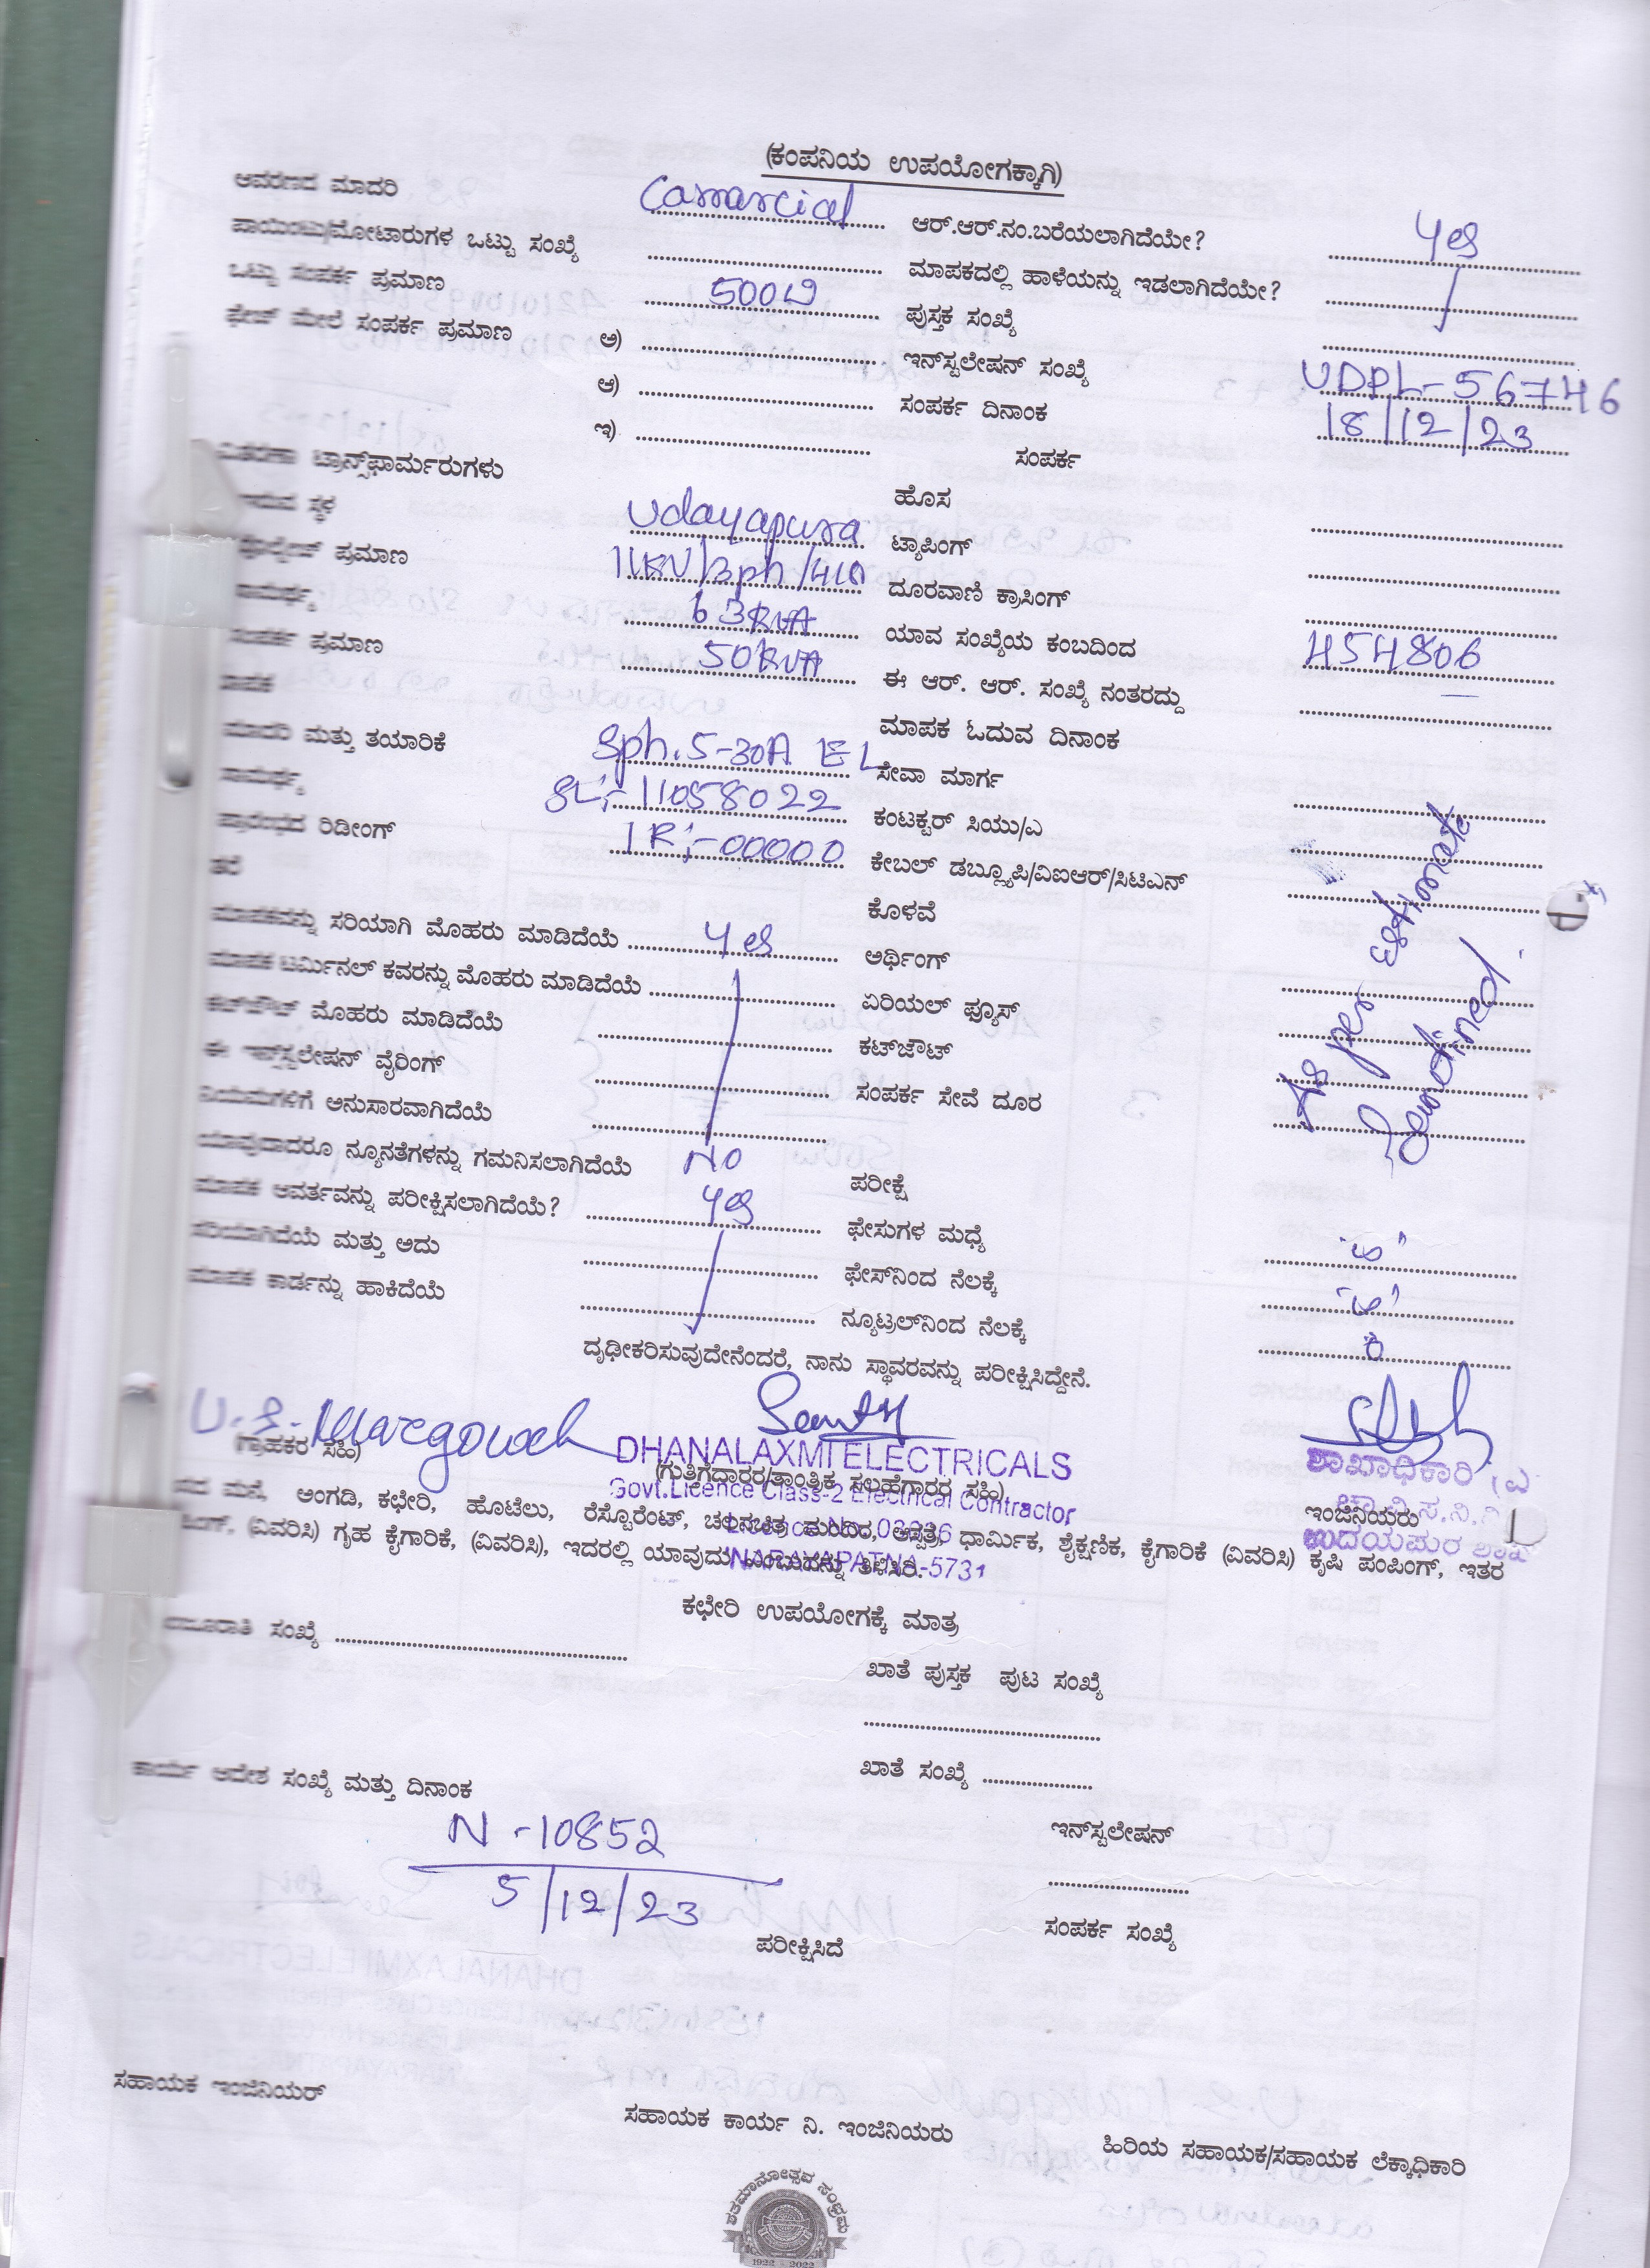 (ಕಂಪನಿಯ ಉಪಯೋಗಕ್ಕಾಗಿ)
ಆವರಣದ ಮಾದರಿ Camarcial ಆರ್.ಆರ್.ನಂ.ಬರೆಯಲಾಗಿದೆಯೇ? yes
ಪಾಯಿಂಟು/ಮೋಟಾರುಗಳ ಒಟ್ಟು ಸಂಖ್ಯೆ ಮಾಪಕದಲ್ಲಿ ಹಾಳೆಯನ್ನು ಇಡಲಾಗಿದೆಯೇ?
ಒಟ್ಟು ಸಂಪರ್ಕ ಪ್ರಮಾಣ 500W ಪುಸ್ತಕ ಸಂಖ್ಯೆ
ಫೇಜ್ ಮೇಲೆ ಸಂಪರ್ಕ ಪ್ರಮಾಣ ಅ) ಇನ್‌ಸ್ಟಲೇಷನ್ ಸಂಖ್ಯೆ UDPL-56746
ಆ) ಸಂಪರ್ಕ ದಿನಾಂಕ 18/12/23
ಇ) ಸಂಪರ್ಕ
ವಿತರಣಾ ಟ್ರಾನ್ಸ್‌ಫಾರ್ಮರುಗಳು ಹೊಸ
ಸ್ಥಳ Udayapura ಟ್ಯಾಪಿಂಗ್
ವೋಲ್ಟೇಜ್ ಪ್ರಮಾಣ 11KV/3ph/410 ದೂರವಾಣಿ ಕ್ರಾಸಿಂಗ್
ಸಾಮರ್ಥ್ಯ 63KVA ಯಾವ ಸಂಖ್ಯೆಯ ಕಂಬದಿಂದ 454806
ಸಂಪರ್ಕ ಪ್ರಮಾಣ 50KVA ಈ ಆರ್. ಆರ್. ಸಂಖ್ಯೆ ನಂತರದ್ದು
ಮಾಪಕ ಮಾಪಕ ಓದುವ ದಿನಾಂಕ
ಮಾದರಿ ಮತ್ತು ತಯಾರಿಕೆ Sph. 5-30A LEL ಸೇವಾ ಮಾರ್ಗ
ಸಾಮರ್ಥ್ಯ SL:-11058022 ಕಂಟಕ್ಟರ್ ಸಿಯು/ಎ
ಪ್ರಾರಂಭದ ರಿಡೀಂಗ್ IR:-00000 ಕೇಬಲ್ ಡಬ್ಲ್ಯೂಪಿ/ವಿಐಆರ್/ಸಿಟಿಎನ್
ತರೆ ಕೊಳವೆ
ಮಾಪಕವನ್ನು ಸರಿಯಾಗಿ ಮೊಹರು ಮಾಡಿದೆಯೆ yes ಅರ್ಥಿಂಗ್
ಮಾಪಕ ಟರ್ಮಿನಲ್ ಕವರನ್ನು ಮೊಹರು ಮಾಡಿದೆಯೆ ಏರಿಯಲ್ ಫ್ಯೂಸ್
ಕಟ್‌ಜೌಟ್ ಮೊಹರು ಮಾಡಿದೆಯೆ ಕಟ್‌ಜೌಟ್
ಈ ಇನ್‌ಸ್ಟಲೇಷನ್ ವೈರಿಂಗ್ ಸಂಪರ್ಕ ಸೇವೆ ದೂರ
As per estimate
Senctined.
ನಿಯಮಗಳಿಗೆ ಅನುಸಾರವಾಗಿದೆಯೆ
ಯಾವುದಾದರೂ ನ್ಯೂನತೆಗಳನ್ನು ಗಮನಿಸಲಾಗಿದೆಯೆ NO ಪರೀಕ್ಷೆ
ಮಾಪಕ ಆವರ್ತವನ್ನು ಪರೀಕ್ಷಿಸಲಾಗಿದೆಯೆ? yes ಫೇಸುಗಳ ಮಧ್ಯೆ
ಸರಿಯಾಗಿದೆಯೆ ಮತ್ತು ಅದು ಫೇಸ್‌ನಿಂದ ನೆಲಕ್ಕೆ
ಮಾಪಕ ಕಾರ್ಡನ್ನು ಹಾಕಿದೆಯೆ ನ್ಯೂಟ್ರಲ್‌ನಿಂದ ನೆಲಕ್ಕೆ
ದೃಢೀಕರಿಸುವುದೇನೆಂದರೆ, ನಾನು ಸ್ಥಾವರವನ್ನು ಪರೀಕ್ಷಿಸಿದ್ದೇನೆ.
(ಗ್ರಾಹಕರ ಸಹಿ)
DHANALAXMI ELECTRICALS
(ಗುತ್ತಿಗೆದಾರರ/ತಾಂತ್ರಿಕ ಸಲಹೆಗಾರರ ಸಹಿ)
Govt.Licence Class-2 Electrical Contractor
NARAYAPATNA-5731
ಶಾಖಾಧಿಕಾರಿ (ಎ
ಇಂಜಿನಿಯರು
ಉದಯಪುರ ಶಾಖೆ
ಮನೆ, ಅಂಗಡಿ, ಕಛೇರಿ, ಹೊಟೆಲು, ರೆಸ್ಟೋರೆಂಟ್, ಚಲನಚಿತ್ರ ಮಂದಿರ, ಆಸ್ಪತ್ರೆ, ಧಾರ್ಮಿಕ, ಶೈಕ್ಷಣಿಕ, ಕೈಗಾರಿಕೆ (ವಿವರಿಸಿ) ಕೃಷಿ ಪಂಪಿಂಗ್, ಇತರ
(ವಿವರಿಸಿ) ಗೃಹ ಕೈಗಾರಿಕೆ, (ವಿವರಿಸಿ), ಇದರಲ್ಲಿ ಯಾವುದು ಎಂಬುದನ್ನು ತಿಳಿಸಿರಿ.
ಕಛೇರಿ ಉಪಯೋಗಕ್ಕೆ ಮಾತ್ರ
ಸಂಖ್ಯೆ
ಖಾತೆ ಪುಸ್ತಕ ಪುಟ ಸಂಖ್ಯೆ
ಖಾತೆ ಸಂಖ್ಯೆ
ಕಾರ್ಯ ಆದೇಶ ಸಂಖ್ಯೆ ಮತ್ತು ದಿನಾಂಕ
N-10852
5/12/23
ಇನ್‌ಸ್ಟಲೇಷನ್
ಸಂಪರ್ಕ ಸಂಖ್ಯೆ
ಪರೀಕ್ಷಿಸಿದೆ
ಸಹಾಯಕ ಇಂಜಿನಿಯರ್
ಸಹಾಯಕ ಕಾರ್ಯ ನಿ. ಇಂಜಿನಿಯರು
ಹಿರಿಯ ಸಹಾಯಕ/ಸಹಾಯಕ ಲೆಕ್ಕಾಧಿಕಾರಿ
ಶತಮಾನೋತ್ಸವ ಸಂಭ್ರಮ
1922 - 2022